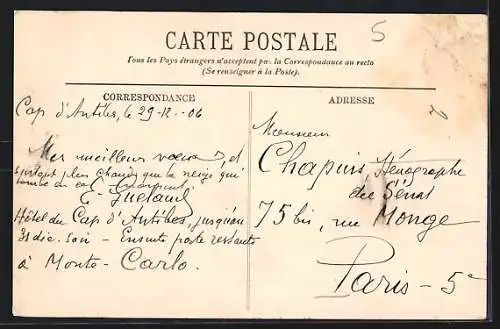 5
CARTE POSTALE
Tous les Pays étrangers n'acceptent pas la Correspondance au recto
(Se renseigner à la Poste).
CORRESPONDANCE
Cap d'Antibes, le 29-12-06
Mes meilleurs vœux, et
surtout plus chauds que la neige qui
tombe en ce
Hôtel du Cap d'Antibes, jusqu'au
31 déc. soir - Ensuite poste restante
à Monte-Carlo.
ADRESSE
Monsieur
Chapuis, Sténographe
du Sénat
75 bis, rue Monge
Paris - 5e